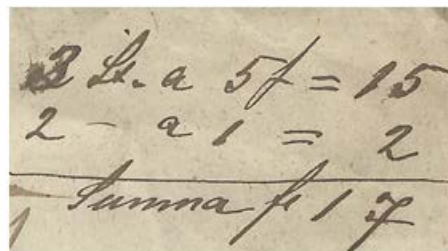 3 St. a 5f = 15
2 - a 1 = 2
Summa fr 17